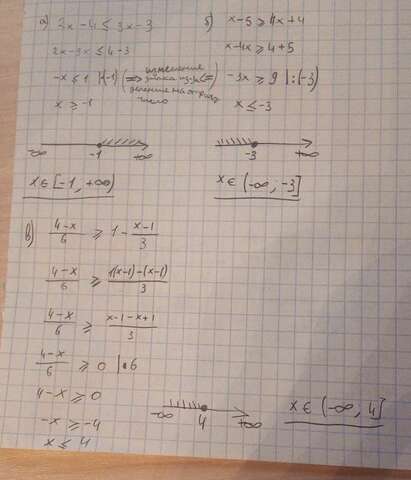 а) 2x - 4 ≤ 3x - 3
2x - 3x ≤ 4 - 3
-x ≤ 1 |·(-1) (=> изменение знака из-за деление на отриц. число
x ≥ -1
-∞ -1 +∞
x ∈ [-1, +∞)
б) x - 5 ≥ 4x + 4
x - 4x ≥ 4 + 5
-3x ≥ 9 | :(-3)
x ≤ -3
-3 +∞
x ∈ (-∞; -3]
в) (4-x)/6 ≥ 1 - (x-1)/3
(4-x)/6 ≥ (1(x-1)-(x-1))/3
(4-x)/6 ≥ (x-1-x+1)/3
(4-x)/6 ≥ 0 |·6
4-x ≥ 0
-x ≥ -4
x ≤ 4
-∞ 4 +∞
x ∈ (-∞, 4]